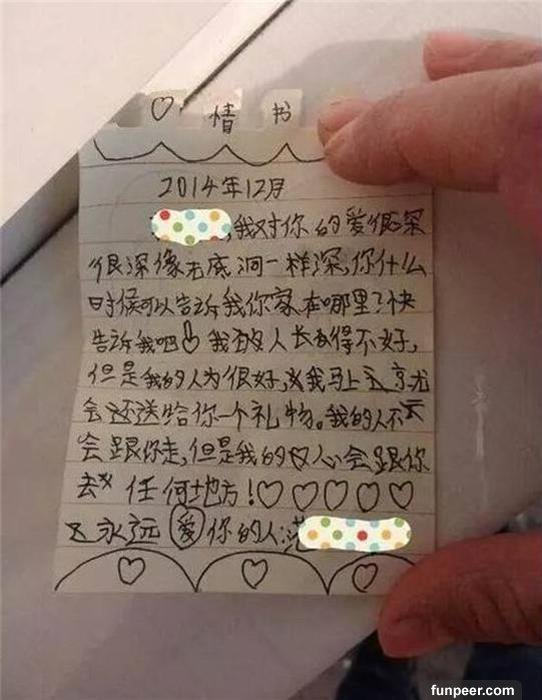 ♡ 情 书
2014年12月
,我对你的爱很深
很深像无底洞一样深,你什么
时候可以告诉我你家在哪里?快
告诉我吧 我的人长得不好,
但是我的人为很好,我马上
会还送给你一个礼物。我的人不
会跟你走,但是我的心会跟你
去 任何地方!♡♡♡♡♡
永远爱你的人:范
funpeer.com